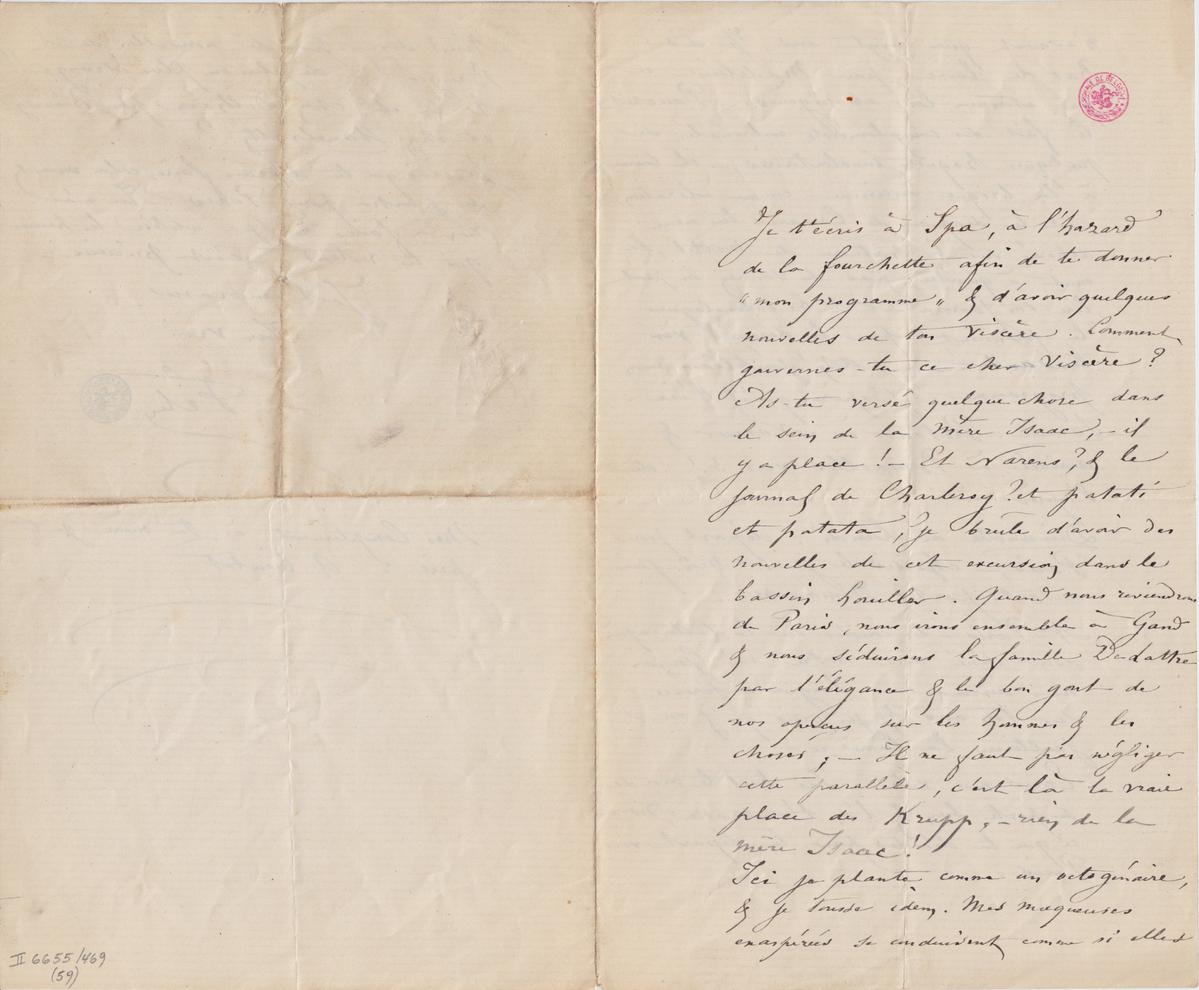 Je t'écris à Spa, à l'hazard
de la fourchette afin de te donner
"mon programme" & d'avoir quelques
nouvelles de ton Viscère. Comment
gouvernes-tu ce cher Viscère?
As-tu versé quelque chose dans
le sein de la mère Isaac, - il
y a place! - Et Narens?, & le
journal de Charleroy? et patati
et patata,? je brûle d'avoir des
nouvelles de cet excursion dans le
bassin houiller. Quand nous reviendrons
de Paris, nous irons ensemble à Gand
& nous séduirons la famille Dedattre
par l'élégance & le bon gout de
nos aperçus sur les hommes & les
choses; - Il ne faut pas négliger
cette parallèle, c'est là la vraie
place des Krupp, - rien de la
mère Isaac!
Ici je plante comme un octogénaire,
& je tousse idem. Mes muqueuses
exaspérées se conduisent comme si elles
II 6655/469
(59)